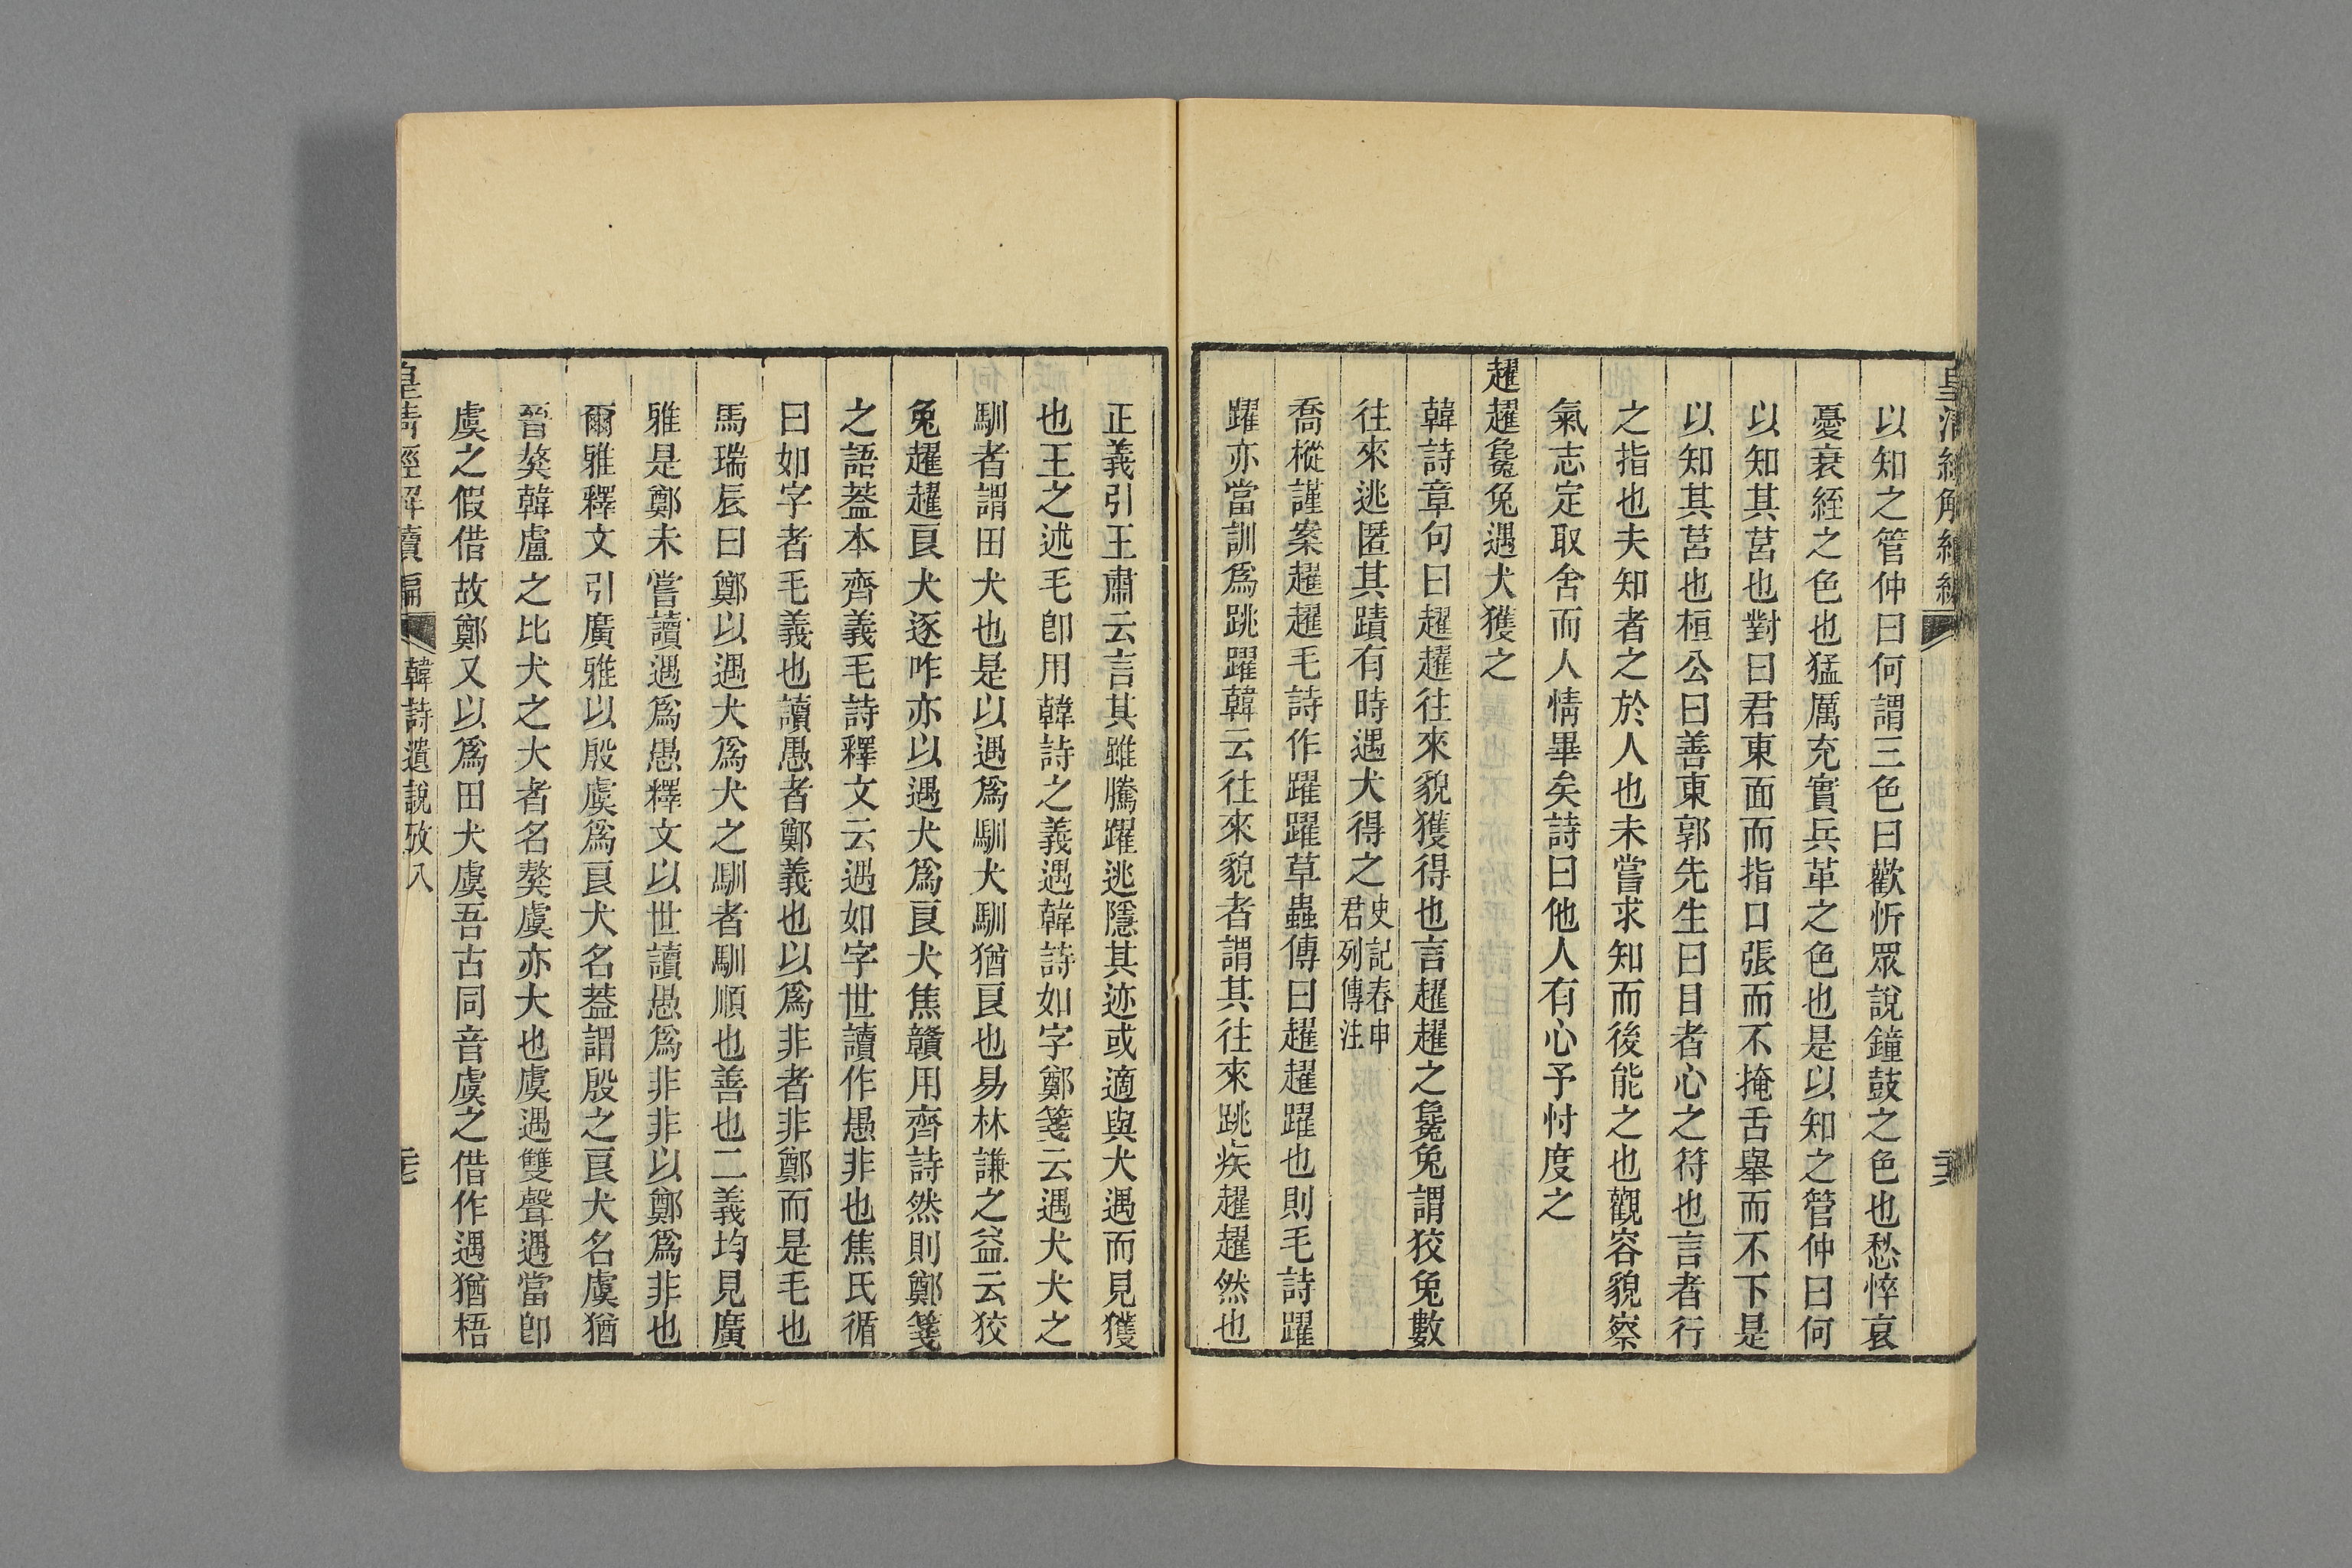 皇清經解續編
以知之管仲曰何謂三色曰歡忻眾說鐘鼓之色也愁悴哀
憂衰絰之色也猛厲充實兵革之色也是以知之管仲曰何
以知其莒也對曰君東面而指口張而不掩舌舉而不下是
以知其莒也桓公曰善東郭先生曰目者心之符也言者行
之指也夫知者之於人也未嘗求知而後能之也觀容貌察
氣志定取舍而人情畢矣詩曰他人有心予忖度之
趯趯毚兔遇犬獲之
韓詩章句曰趯趯往來貌獲得也言趯趯之毚兔謂狡兔數
往來逃匿其蹟有時遇犬得之史記春申君列傳注
喬樅謹案趯趯毛詩作躍躍草蟲傳曰趯趯躍也則毛詩躍
躍亦當訓爲跳躍韓云往來貌者謂其往來跳疾趯趯然也
正義引王肅云言其雖騰躍逃隱其迹或適與犬遇而見獲
也王之述毛卽用韓詩之義遇韓詩如字鄭箋云遇犬犬之
馴者謂田犬也是以遇爲馴犬馴猶良也易林謙之益云狡
兔趯趯良犬逐咋亦以遇犬爲良犬焦贛用齊詩然則鄭箋
之語蓋本齊義毛詩釋文云遇如字世讀作愚非也焦氏循
曰如字者毛義也讀愚者鄭義也以爲非者非鄭而是毛也
馬瑞辰曰鄭以遇犬爲犬之馴者馴順也善也二義均見廣
雅是鄭未嘗讀遇爲愚釋文以世讀愚爲非非以鄭爲非也
爾雅釋文引廣雅以殷虞爲良犬名蓋謂殷之良犬名虞猶
晉獒韓盧之比犬之大者名獒虞亦大也虞遇雙聲遇當卽
虞之假借故鄭又以爲田犬虞吾古同音虞之借作遇猶梧
皇清經解續編 韓詩遺說攷八